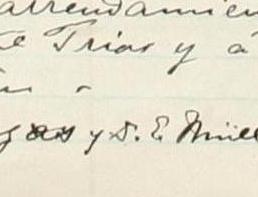 arrendamien
e Trias y á
gas y D. E. Mill